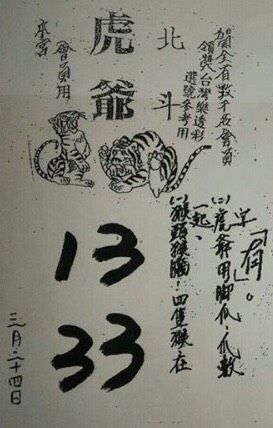 賀全省數千名會員
領獎台灣樂透彩
選號參考用
北斗
虎爺
會員用
本宮
字「有」。
(二)虎爺用腳爪,爪數
一起、
(一)猴頭猴腦!四隻猴在
13
33
三月二十四日